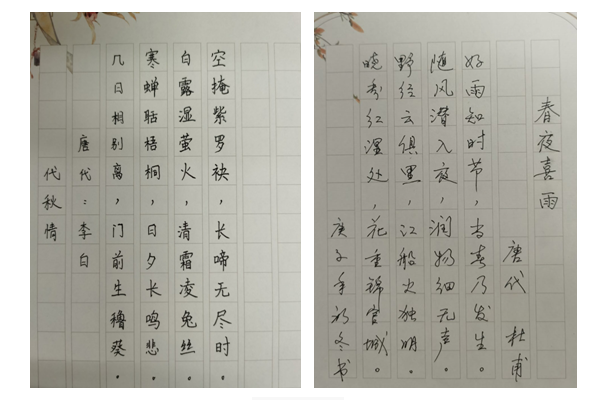 代秋情
唐代：李白
几日相别离，门前生穞葵。
寒蝉聒梧桐，日夕长鸣悲。
白露湿萤火，清霜凌兔丝。
空掩紫罗袂，长啼无尽时。
春夜喜雨
唐代 杜甫
好雨知时节，当春乃发生。
随风潜入夜，润物细无声。
野径云俱黑，江船火独明。
晓看红湿处，花重锦官城。
庚子年初冬书